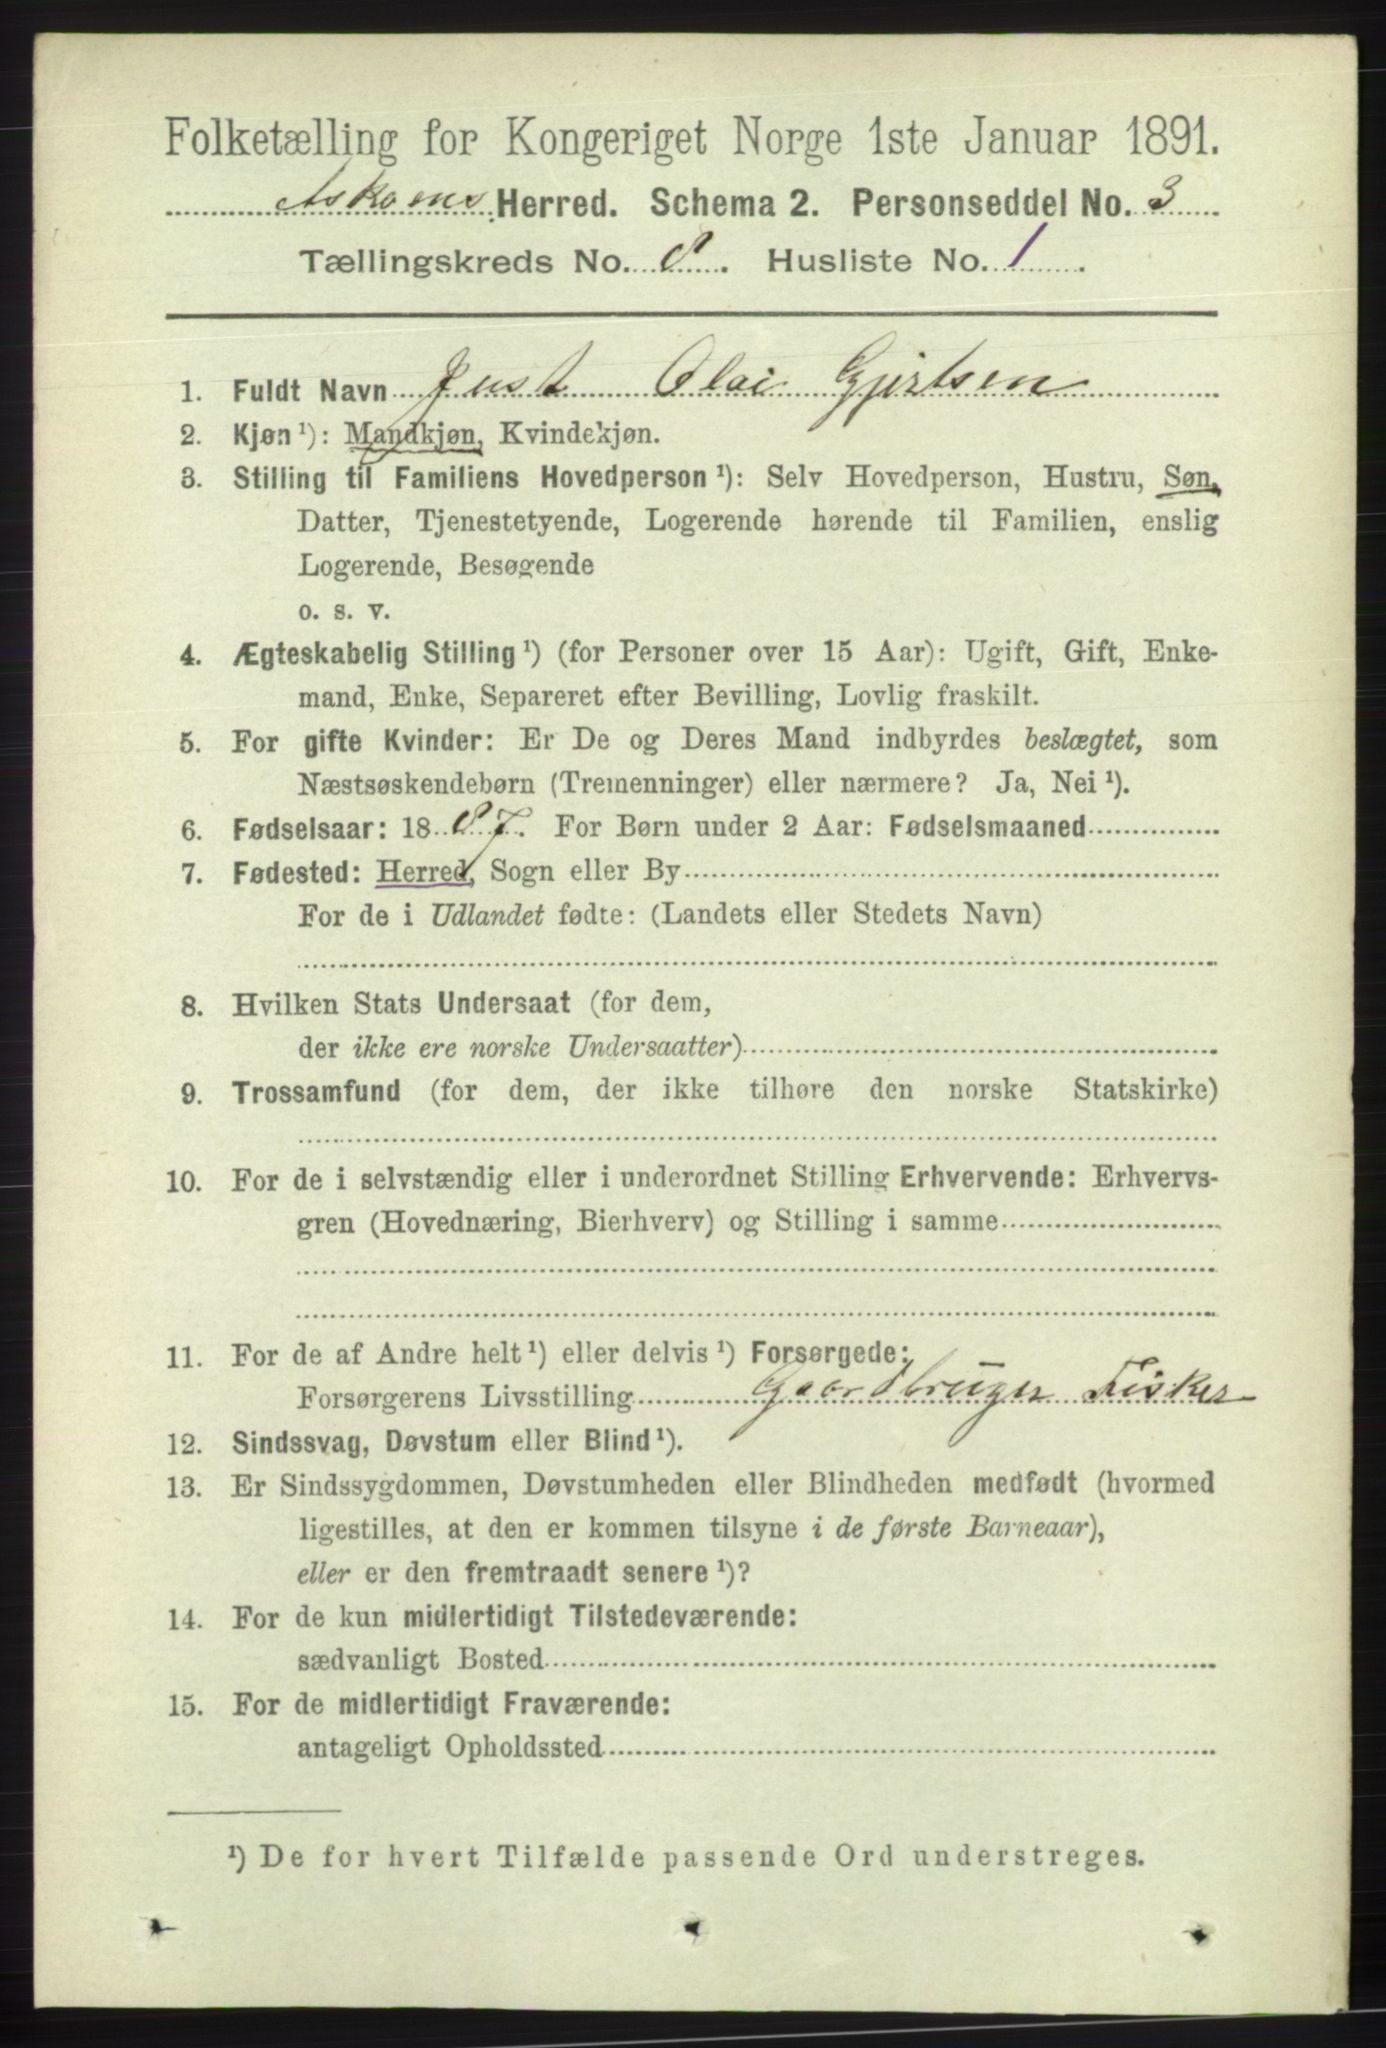 Folketælling for Kongeriget Norge 1ste Januar 1891.
Askøens Herred. Schema 2. Personseddel No. 3
Tællingskreds No. 8. Husliste No. 1.
1. Fuldt Navn Just Olai Gjertsen
2. Kjøn ¹): Mandkjøn, Kvindekjøn.
3. Stilling til Familiens Hovedperson ¹): Selv Hovedperson, Hustru, Søn,
Datter, Tjenestetyende, Logerende hørende til Familien, enslig
Logerende, Besøgende
o. s. v.
4. Ægteskabelig Stilling ¹) (for Personer over 15 Aar): Ugift, Gift, Enke-
mand, Enke, Separeret efter Bevilling, Lovlig fraskilt.
5. For gifte Kvinder: Er De og Deres Mand indbyrdes beslægtet, som
Næstsøskendebørn (Tremenninger) eller nærmere? Ja, Nei ¹).
6. Fødselsaar: 1887. For Børn under 2 Aar: Fødselsmaaned
7. Fødested: Herred, Sogn eller By
For de i Udlandet fødte: (Landets eller Stedets Navn)
8. Hvilken Stats Undersaat (for dem,
der ikke ere norske Undersaatter)
9. Trossamfund (for dem, der ikke tilhøre den norske Statskirke)
10. For de i selvstændig eller i underordnet Stilling Erhvervende: Erhvervs-
gren (Hovednæring, Bierhverv) og Stilling i samme
11. For de af Andre helt ¹) eller delvis ¹) Forsørgede:
Forsørgerens Livsstilling Gaardbruger Fisker
12. Sindssvag, Døvstum eller Blind ¹).
13. Er Sindssygdommen, Døvstumheden eller Blindheden medfødt (hvormed
ligestilles, at den er kommen tilsyne i de første Barneaar),
eller er den fremtraadt senere ¹)?
14. For de kun midlertidigt Tilstedeværende:
sædvanligt Bosted
15. For de midlertidigt Fraværende:
antageligt Opholdssted
¹) De for hvert Tilfælde passende Ord understreges.